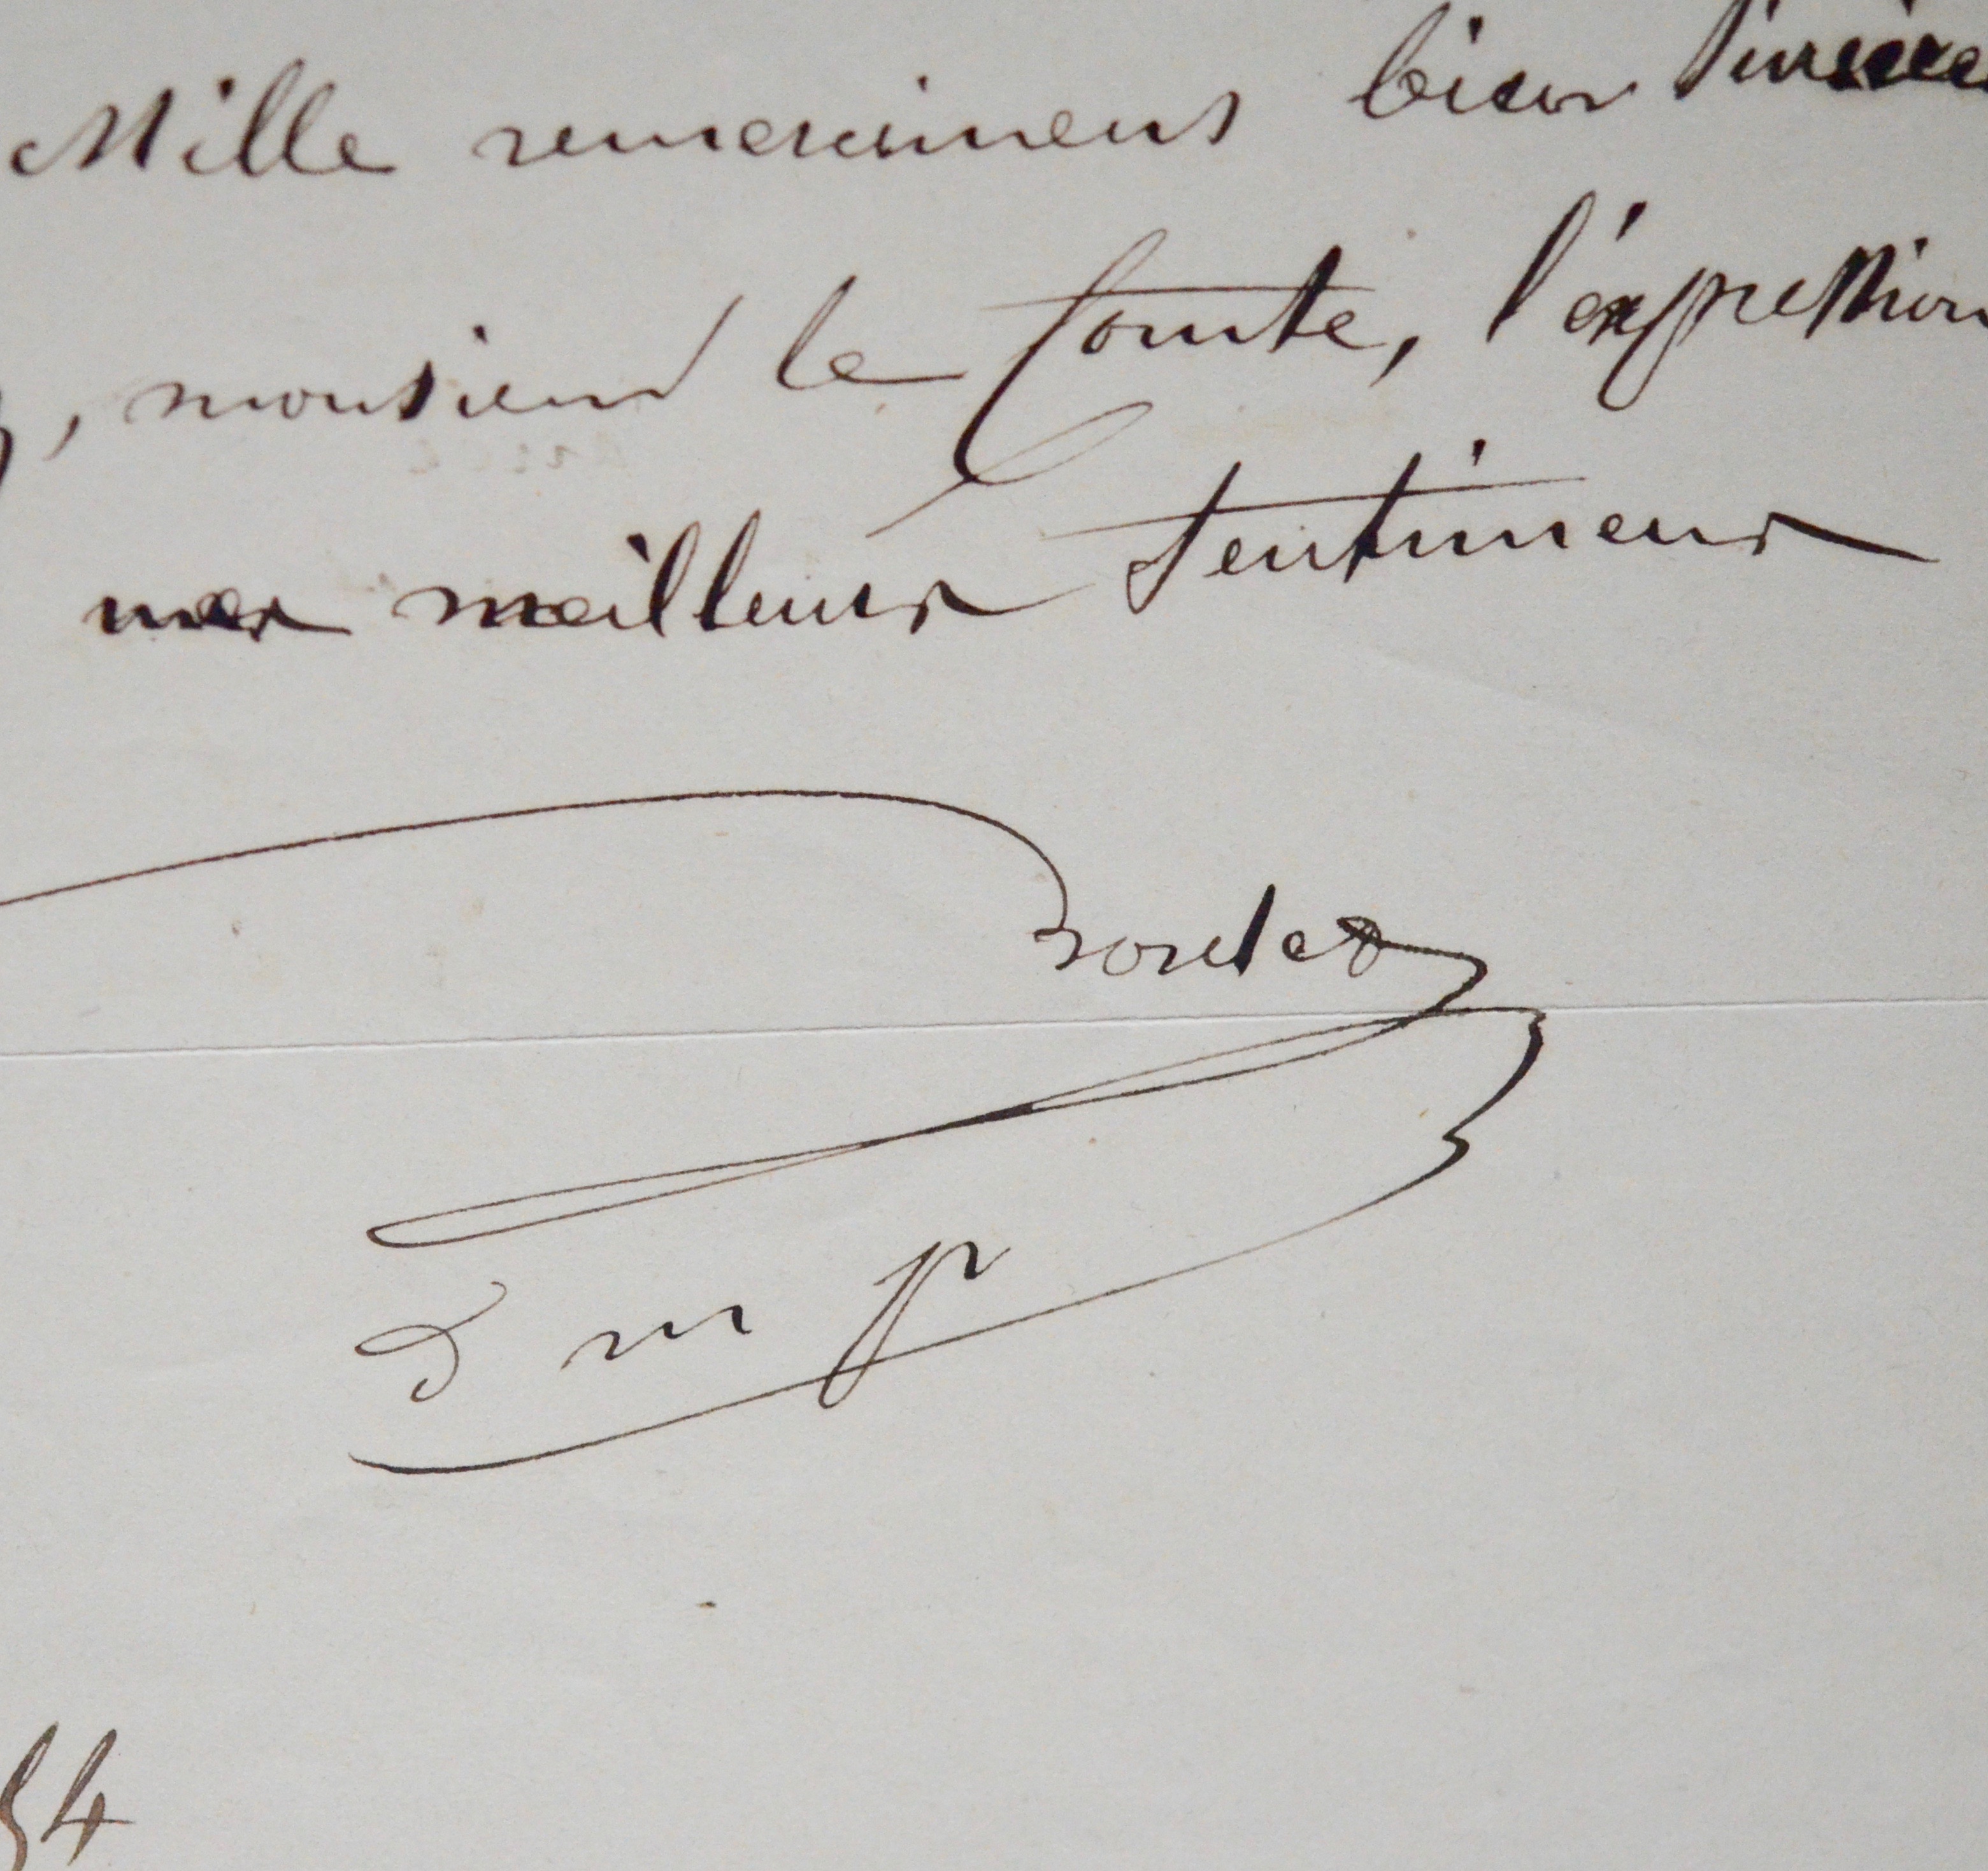 Mille remercimens bien sincères
, monsieur le Comte, l'expression
mes meilleurs sentimens
d m p
54